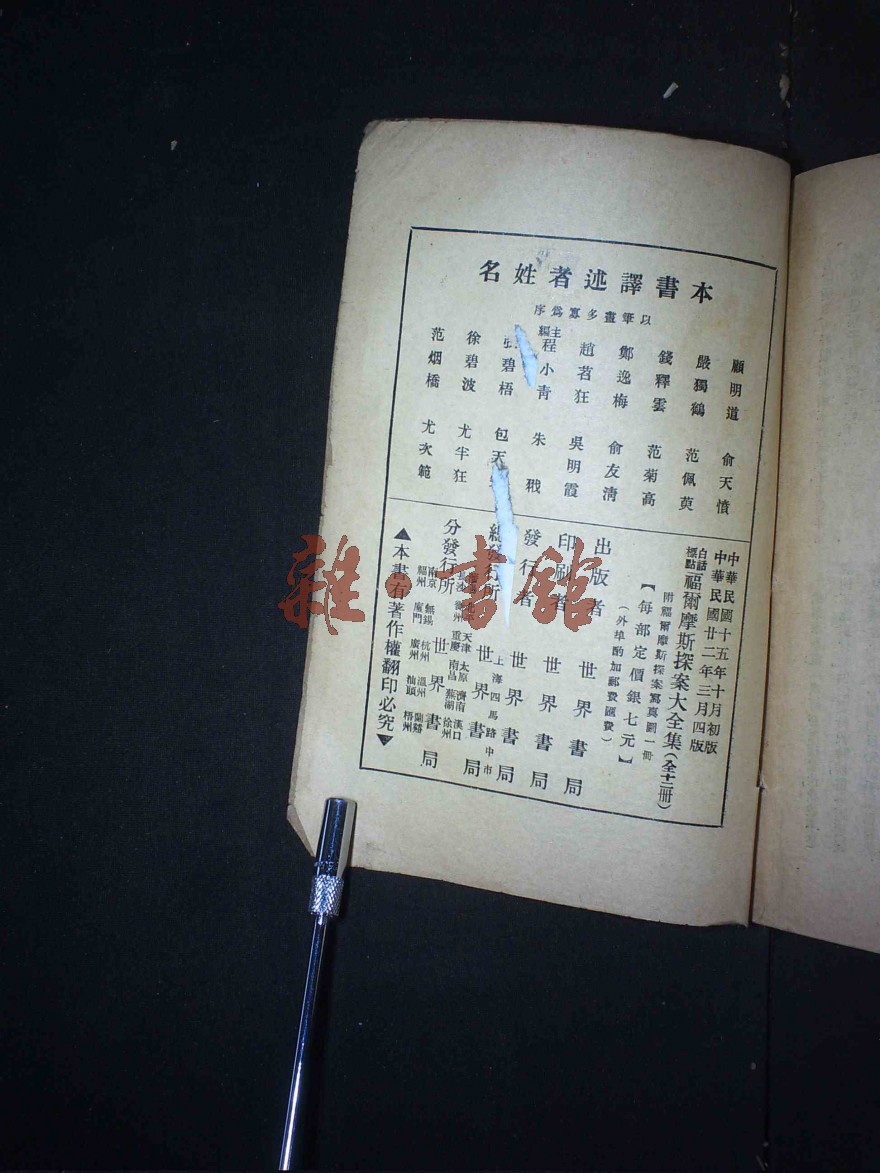 本書譯述者姓名
以筆畫多寡爲序
顧明道 俞天憤
嚴獨鶴 范佩萸
錢釋雲 范菊高
鄭逸梅 俞友清
趙苕狂 吳明霞
主編 程小青 朱戩
碧梧 包天
徐碧波 尤半狂
范烟橋 尤次範
中華民國十五年十月初版
中華民國廿二年三月四版
白話標點 福爾摩斯探案大全集(全十二冊)
附福爾摩斯探案寫真圖一冊
【每部定價銀七元】
(外埠酌加郵費匯費)
出版者 世界書局
印刷者 世界書局
發行者 世界書局
總發行所 上海四馬路中市 世界書局
分發行所 世界書局
長沙 衢州 重慶 南昌 蕪湖 徐州
天津 太原 濟南 漢口
南京 無錫 杭州 溫州 蘭谿
福州 廈門 廣州 汕頭 梧州
▲本書有著作權翻印必究▼
雜·書館